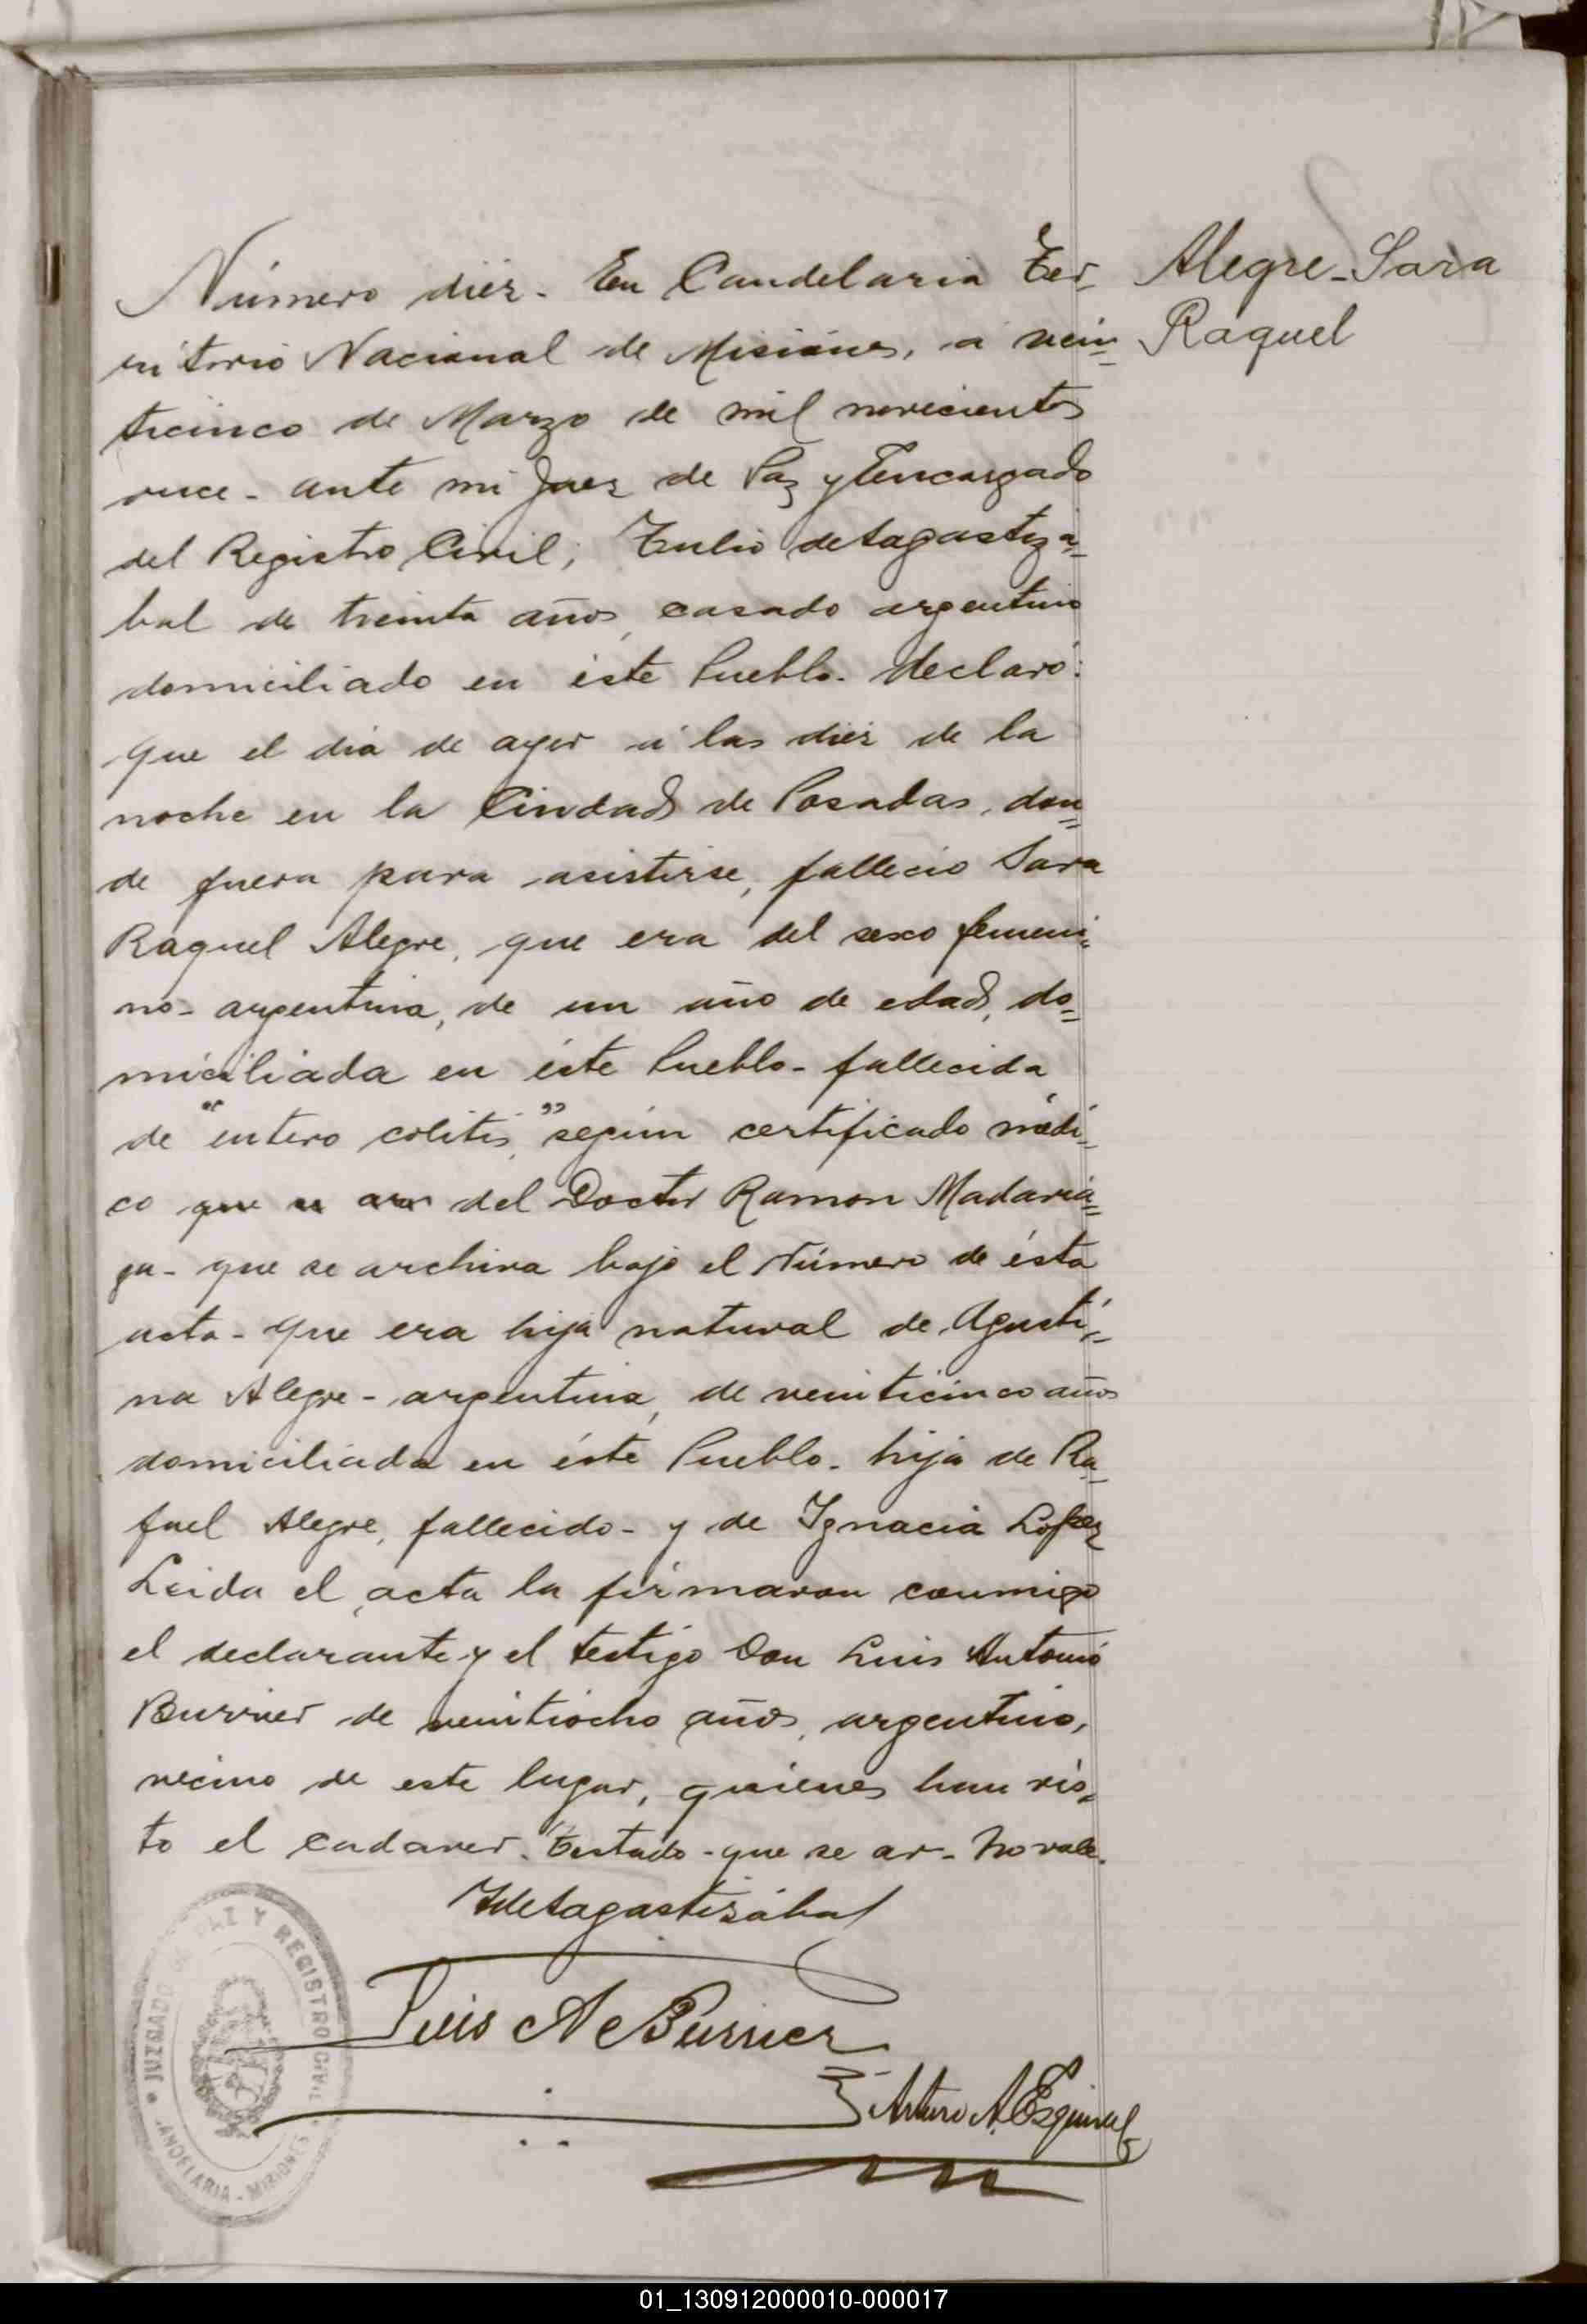 Alegre - Sara
Raquel
Número diez - En Candelaria Ter-
ritorio Nacional de Misiones, a vein=
ticinco de Marzo de mil novecientos
once - ante mi Juez de Paz y Encargado
del Registro Civil; Tulio de Sagastiza=
bal de treinta años, casado argentino
domiciliado en éste Pueblo - declaró:
que el dia de ayer á las diez de la
noche en la Ciudad de Posadas, don=
de fuera para asistirse, fallecio Sara
Raquel Alegre, que era del sexo femeni=
no - argentina, de un año de edad, do=
miciliada en éste Pueblo - fallecida
de "entero colitis," según certificado médi=
co que se ar del Doctor Ramon Madaria=
ga - que se archiva bajo el Número de ésta
acta - que era hija natural de Agusti=
na Alegre - argentina, de veinticinco años
domiciliada en éste Pueblo - hija de Ra=
fael Alegre, fallecido - y de Ygnacia Lopez
Leida el acta la firmaron conmigo
el declarante y el testigo Don Luis Antonio
Burrier de veintiocho años, argentino,
vecino de este lugar, quienes han vis=
to el cadaver. Testado - que se ar - No vale.
TdeSagastizábal
Luis A Burrier
Arturo A. Esquivel
JUZGADO DE PAZ Y REGISTRO CIVIL
CANDELARIA - MISIONES
01_130912000010-000017